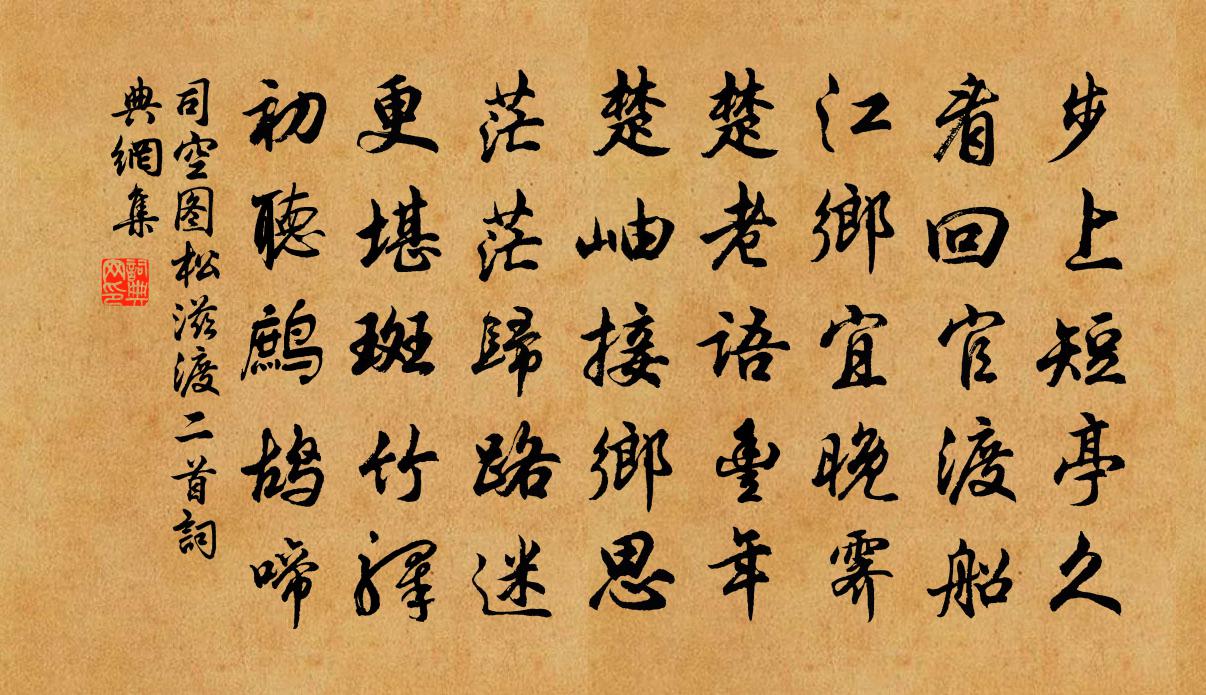 步上短亭久
看回官渡船
江鄉宜晚霽
楚老語豐年
楚岫接鄉思
茫茫歸路迷
更堪斑竹驛
初聽鷓鴣啼
司空图松滋渡二首詞
典網集
詞典网印